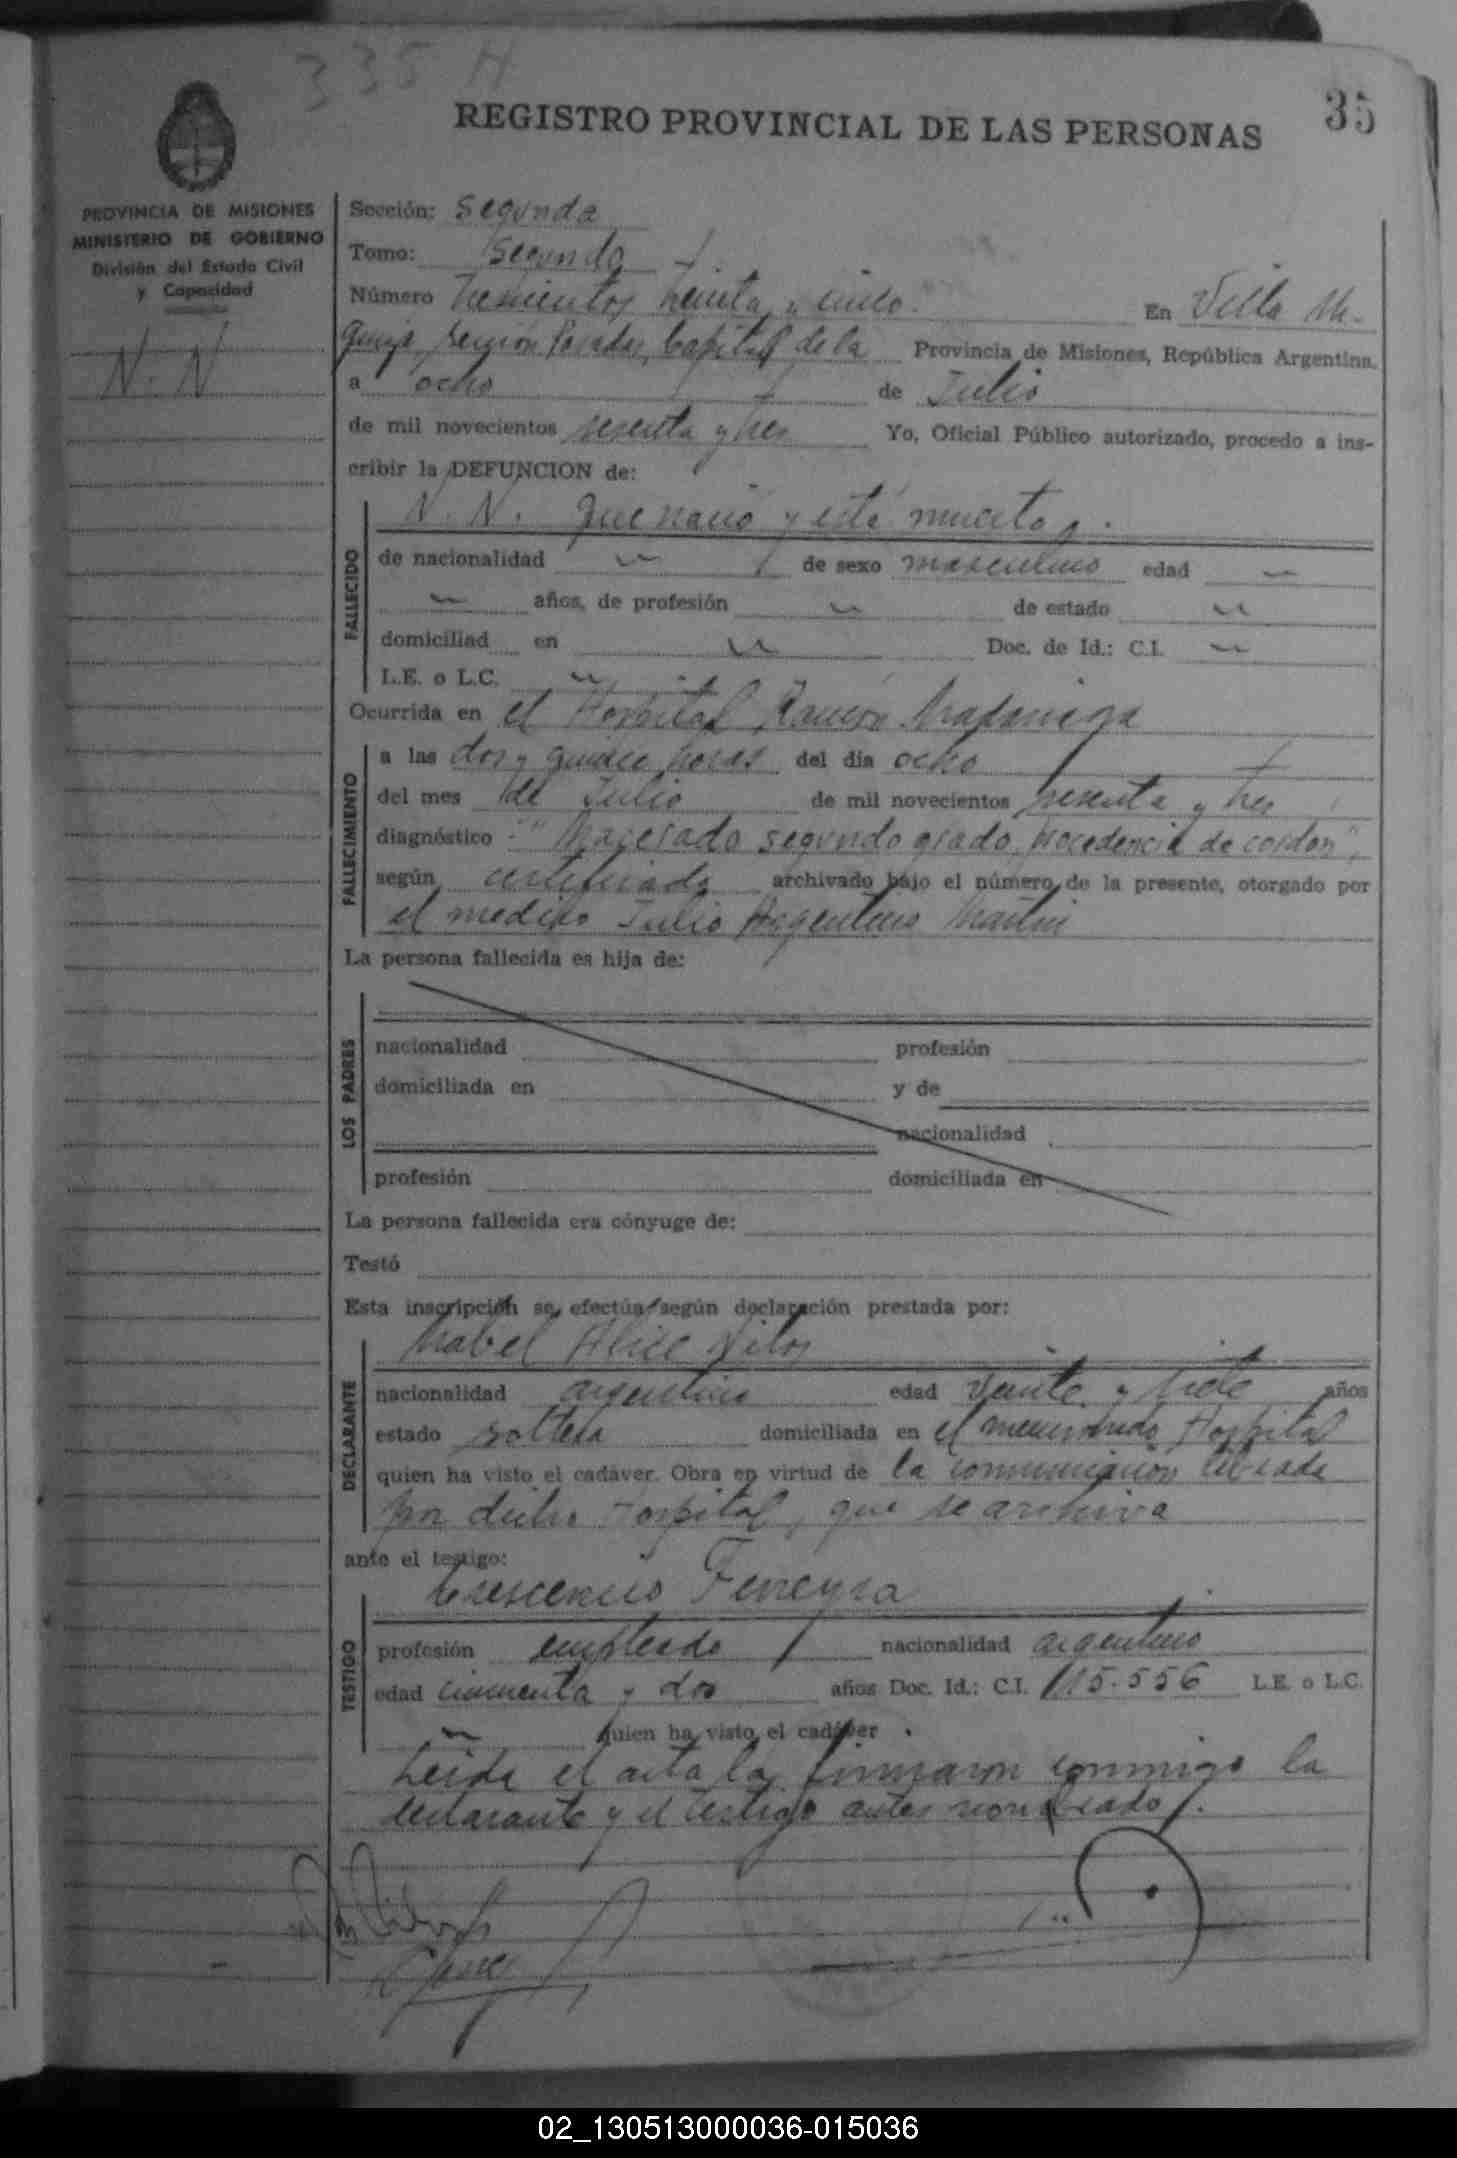 335 H
35
REGISTRO PROVINCIAL DE LAS PERSONAS
PROVINCIA DE MISIONES
MINISTERIO DE GOBIERNO
División del Estado Civil
y Capacidad
N. N
Sección: Segunda
Tomo: Segundo
Número trescientos treinta y cinco. En Villa Ur-
quiza, sección Posadas, Capital de la Provincia de Misiones, República Argentina,
a ocho de Julio
de mil novecientos sesenta y tres Yo, Oficial Público autorizado, procedo a ins-
cribir la DEFUNCION de:
FALLECIDO
N. N. que nació y está muerto.
de nacionalidad de sexo masculino edad
años, de profesión de estado
domiciliad en Doc. de Id.: C.I.
L.E. o L.C.
Ocurrida en el Hospital Ramón Madariaga
FALLECIMIENTO
a las dos y quince horas del día ocho
del mes de Julio de mil novecientos sesenta y tres
diagnóstico "Macerado segundo grado, procedencia de cordon",
según certificado archivado bajo el número de la presente, otorgado por
el medico Julio Argentino Martin
La persona fallecida es hija de:
LOS PADRES
nacionalidad profesión
domiciliada en y de
nacionalidad
profesión domiciliada en
La persona fallecida era cónyuge de:
Testó
Esta inscripción se efectúa según declaración prestada por:
DECLARANTE
Mabel Alice
nacionalidad argentina edad veinte y siete años
estado soltera domiciliada en el mencionado Hospital
quien ha visto el cadáver. Obra en virtud de la comunicación librada
por dicho Hospital, que se archiva
ante el testigo:
TESTIGO
Crescencio Ferreyra
profesión empleado nacionalidad argentino
edad cincuenta y dos años Doc. Id.: C.I. 115.556 L.E. o L.C.
quien ha visto el cadáver.
Leída el acta la firmaron conmigo la
declarante y el testigo antes nombrado.
02_130513000036-015036